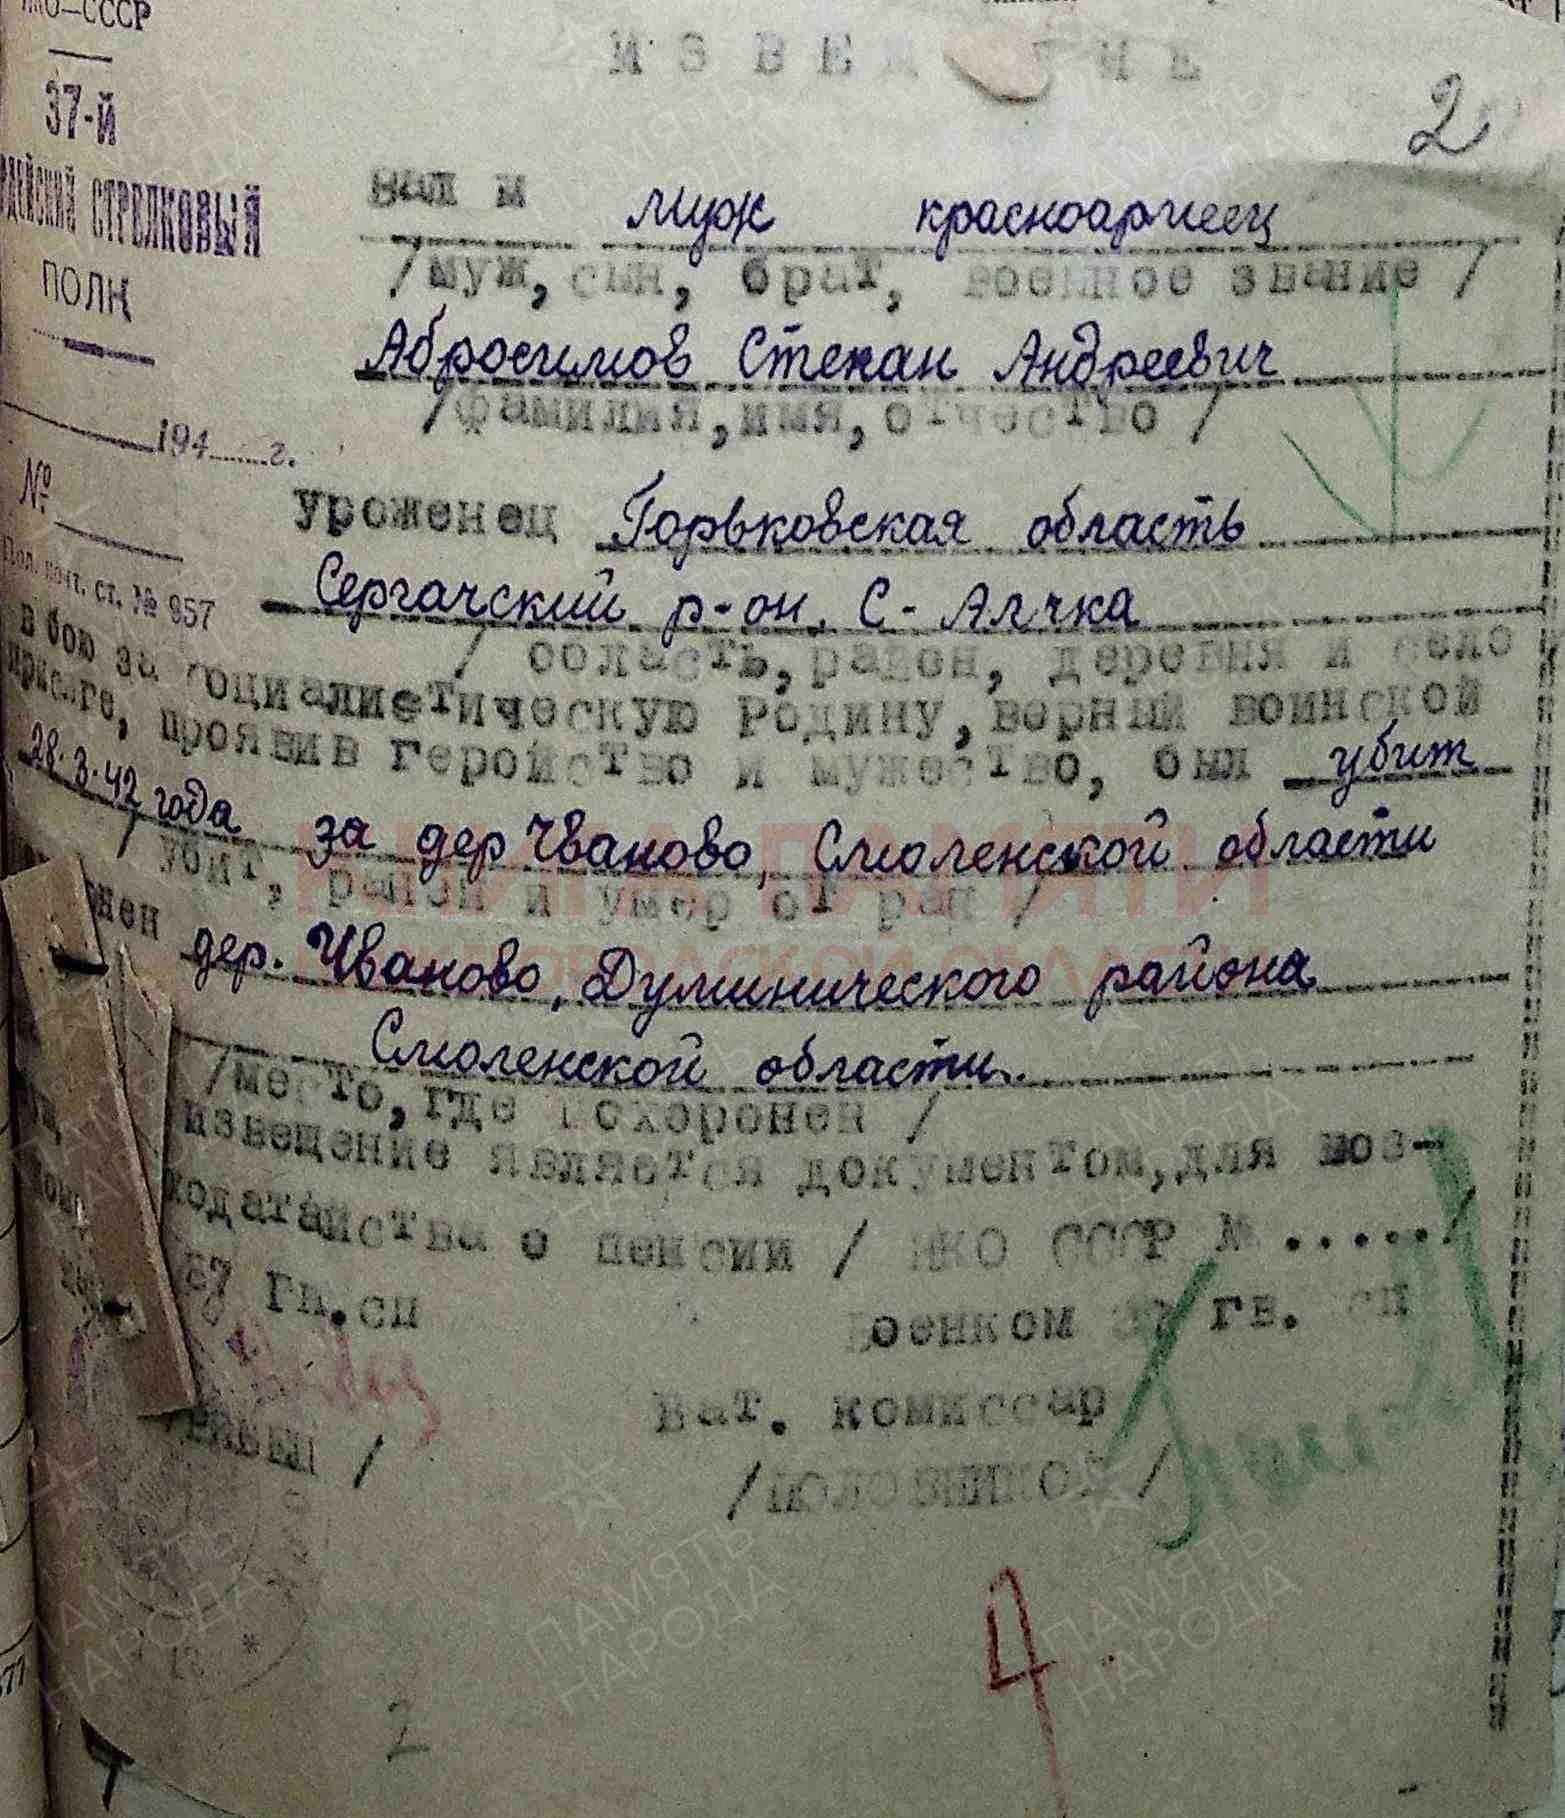 НКО—СССР
37-Й
СТРЕЛКОВЫЙ
ПОЛК
194 г.
№
Пол. почт. ст. № 957
2
ваш м муж красноармеец
/муж, сын, брат, военное звание /
Абросимов Степан Андреевич
/фамилия, имя, отчество /
уроженец Горьковская область
Сергачский р-он. С- Ачка
/ область, район, деревня и село
в бою за социалистическую Родину, верный воинской
присяге, проявив геройство и мужество, был убит
28.3.42 года за дер Чваново, Смоленской области
/ убит, ранен и умер от ран /
дер. Чваново, Думинического района
Смоленской области.
/место, где похоронен /
извещение является документом, для воз-
ходатайства о пенсии / НКО СССР № ...../
37 гв. сп Военком 37 гв. сп
Бат. комиссар
4
2
КНИГА ПАМЯТИ
НИЖЕГОРОДСКОЙ ОБЛАСТИ
ПАМЯТЬ НАРОДА